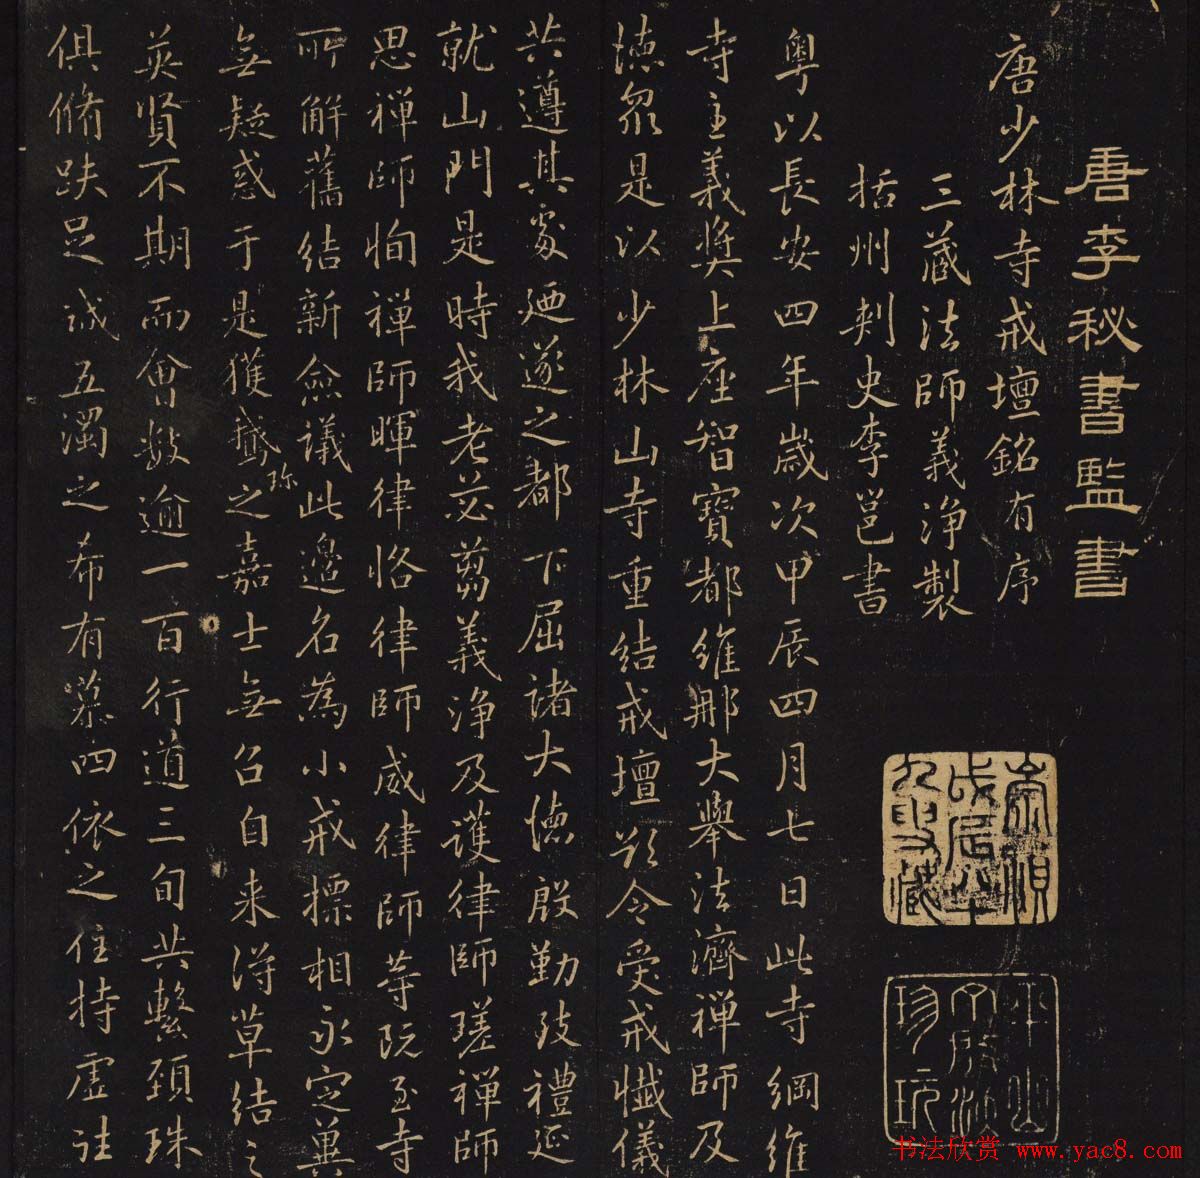 唐李秘書監書
唐少林寺戒壇銘有序
三藏法師義淨製
括州刺史李邕書
粵以長安四年歲次甲辰四月七日此寺綱維
寺主義奬上座智寶都維那大舉法濟禪師及
德眾是以少林山寺重結戒壇欲令受戒懺儀
共遵其處廼遂之都下屈諸大德殷勤致禮延
就山門是時我老苾芻義淨及護律師瑳禪師
思禪師恂禪師暉律恪律師威律師等既至寺
所解舊結新僉議此邊名為小戒摽相永定冀
無疑惑于是獲鵝珎之嘉士無召自来得草結之
英賢不期而會數逾一百行道三旬共繫頚珠
俱脩趺足誠五濁之希有慕四依之住持虛往
書法欣赏 www.yac8.com